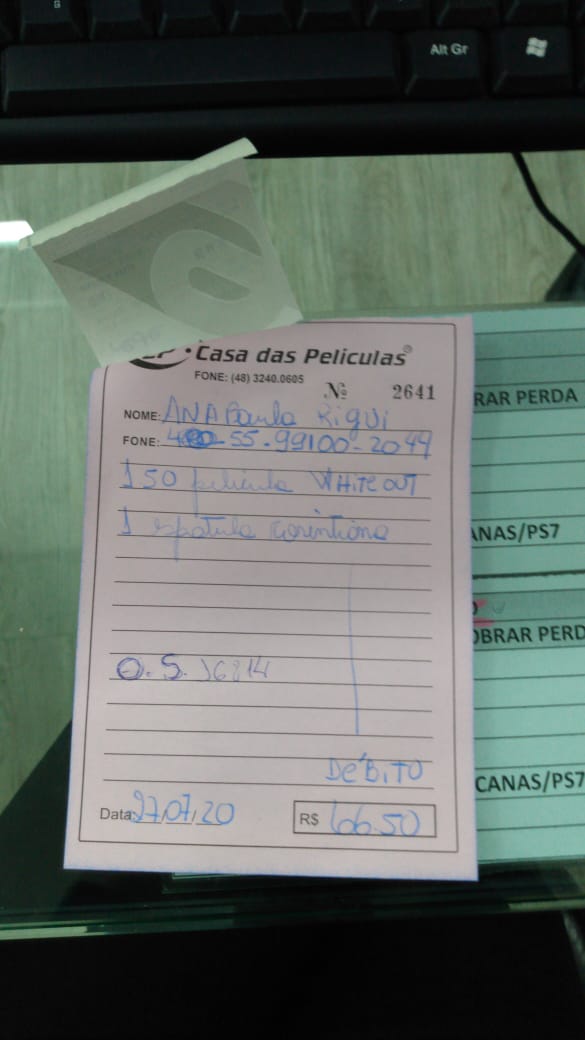 G
Alt Gr
Casa das Peliculas®
FONE: (48) 3240.0605
Nº 2641
NOME: ANA Paula Rigui
FONE: 55.99100-2044
1 50 pelicula WHITE OUT
1 espatula corintiana
O.S. 16214
DéBITO
Data: 27,07,20
R$ 66.50
RAR PERDA
ANAS/PS7
OBRAR PERD
CANAS/PS7